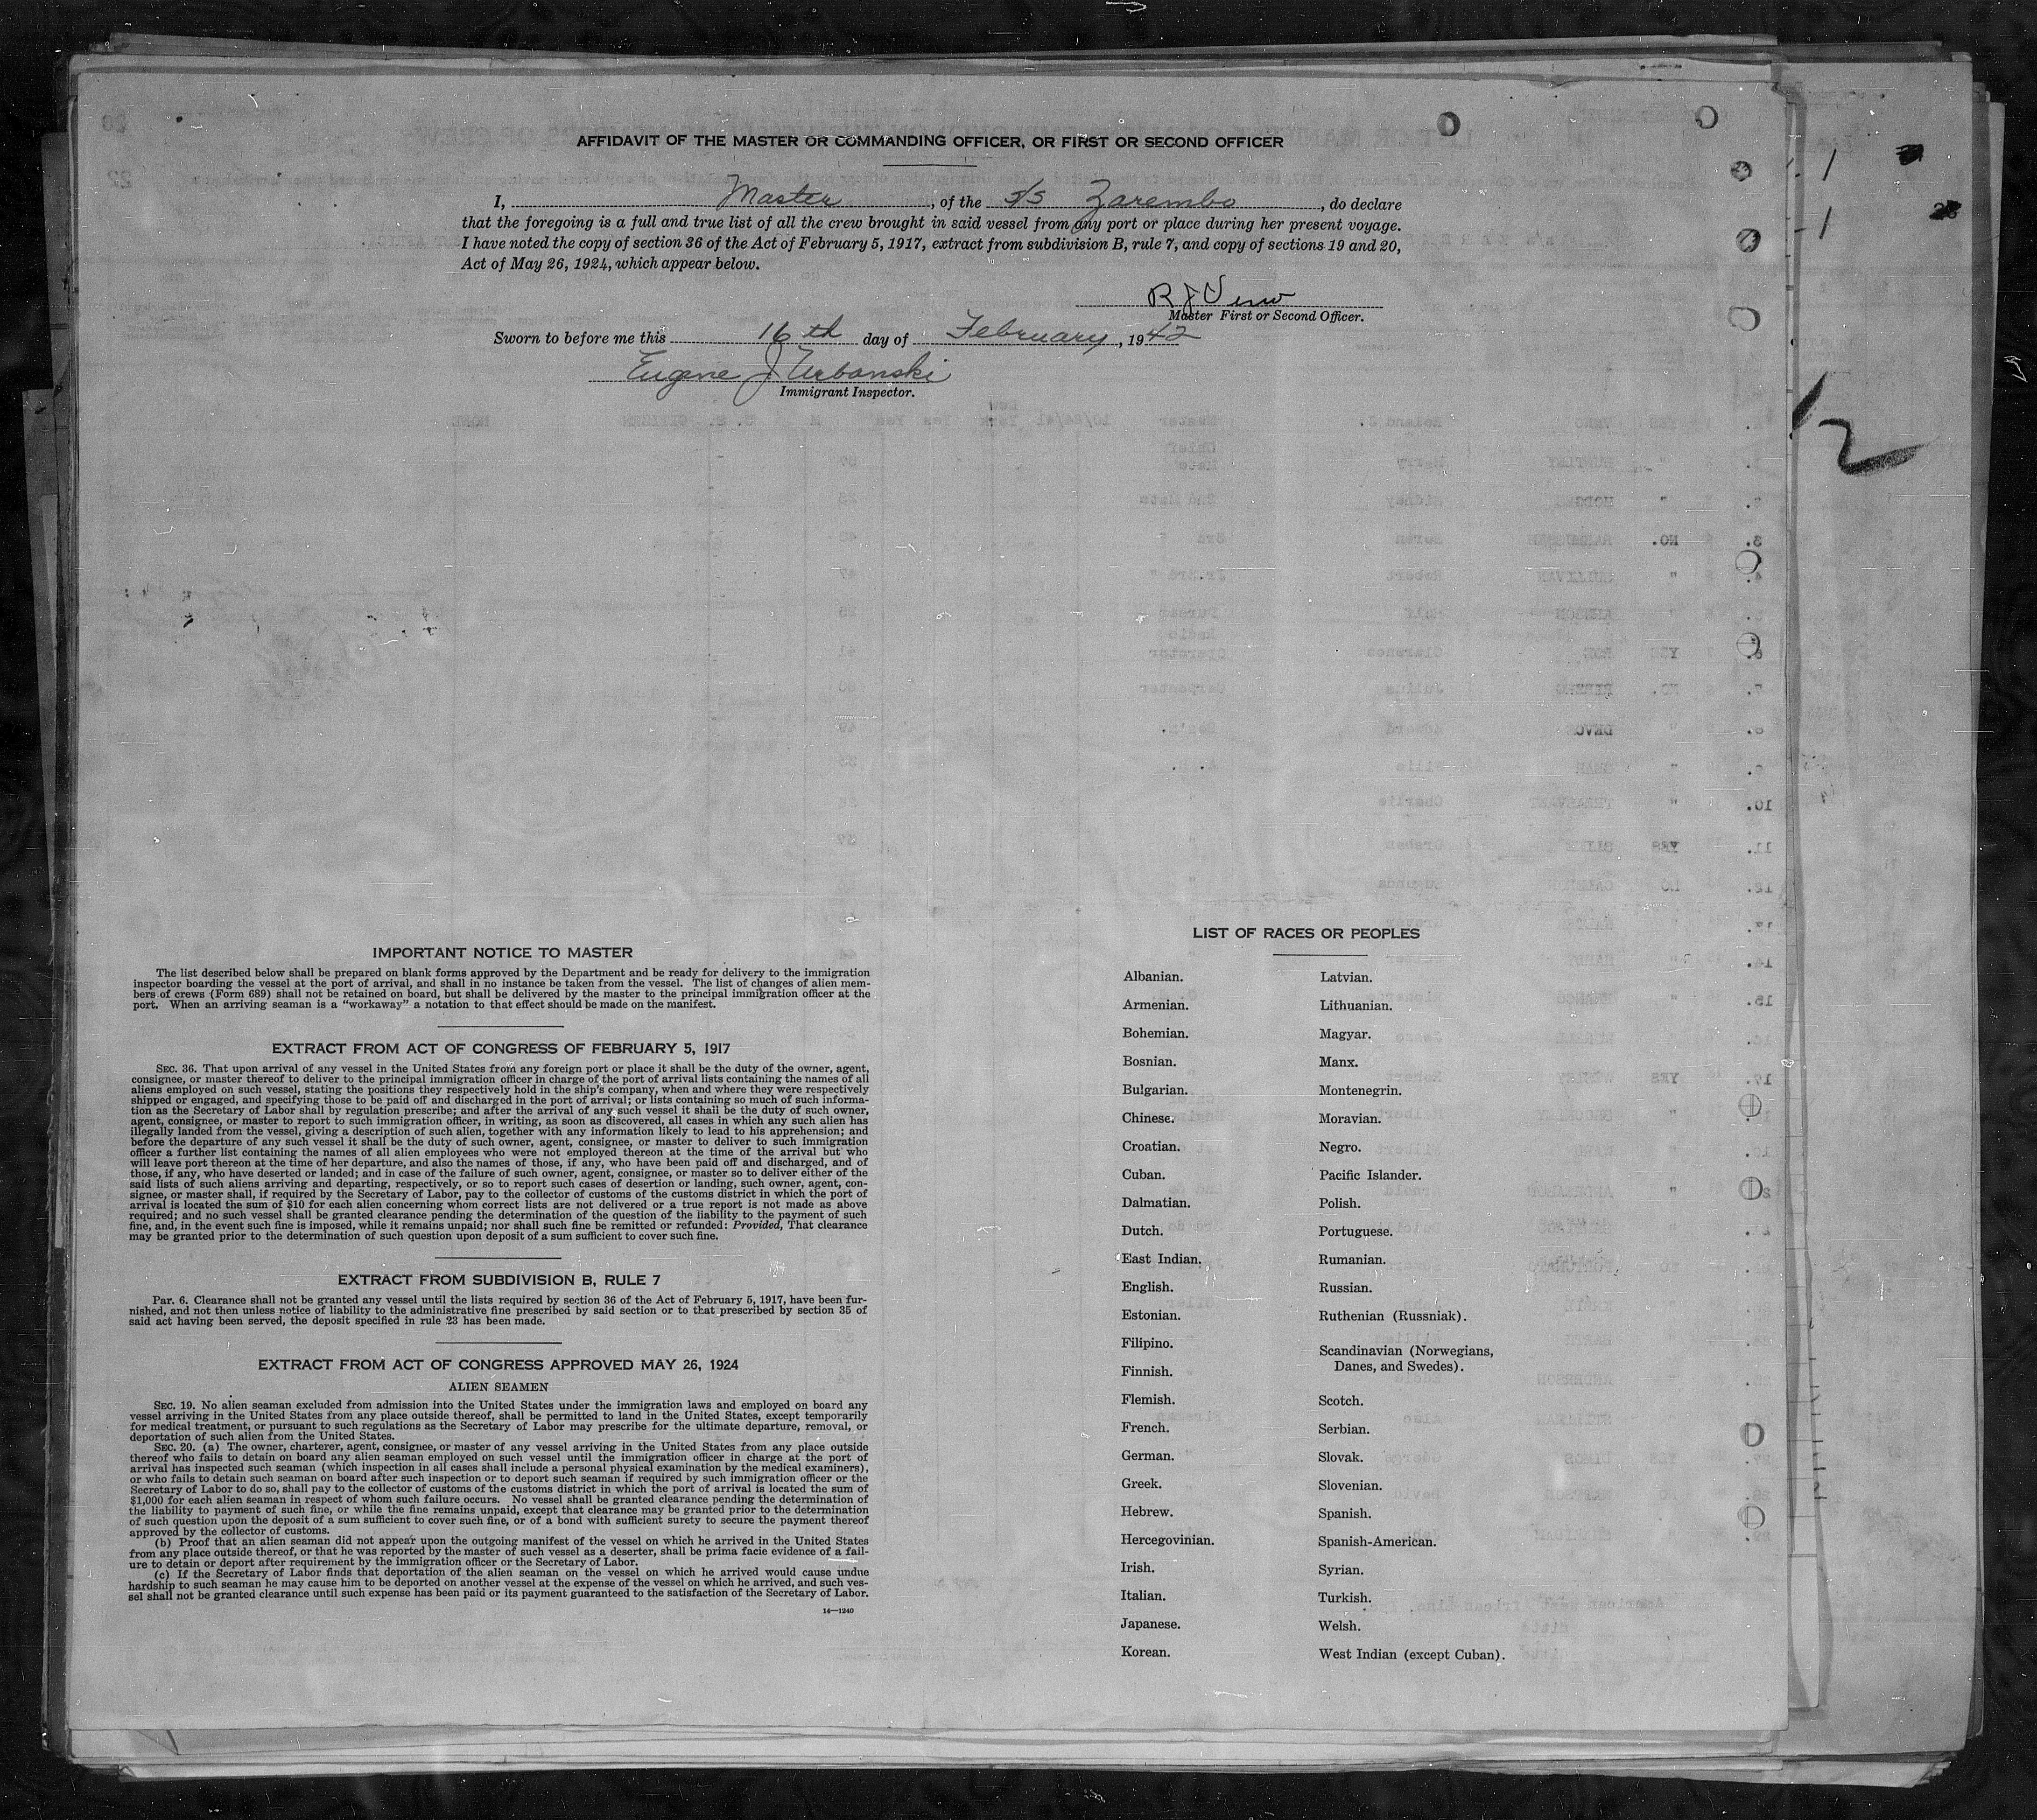 AFFIDAVIT OF THE MASTER OR COMMANDING OFFICER, OR FIRST OR SECOND OFFICER
I, Master, of the S/S Zarembo, do declare
that the foregoing is a full and true list of all the crew brought in said vessel from any port or place during her present voyage.
I have noted the copy of section 36 of the Act of February 5, 1917, extract from subdivision B, rule 7, and copy of sections 19 and 20,
Act of May 26, 1924, which appear below.
R J
Master First or Second Officer.
Sworn to before me this 16th day of February, 1942
Eugene J Urbanski
Immigrant Inspector.
12
IMPORTANT NOTICE TO MASTER
The list described below shall be prepared on blank forms approved by the Department and be ready for delivery to the immigration
inspector boarding the vessel at the port of arrival, and shall in no instance be taken from the vessel. The list of changes of alien mem-
bers of crews (Form 689) shall not be retained on board, but shall be delivered by the master to the principal immigration officer at the
port. When an arriving seaman is a "workaway" a notation to that effect should be made on the manifest.
EXTRACT FROM ACT OF CONGRESS OF FEBRUARY 5, 1917
SEC. 36. That upon arrival of any vessel in the United States from any foreign port or place it shall be the duty of the owner, agent,
consignee, or master thereof to deliver to the principal immigration officer in charge of the port of arrival lists containing the names of all
aliens employed on such vessel, stating the positions they respectively hold in the ship's company, when and where they were respectively
shipped or engaged, and specifying those to be paid off and discharged in the port of arrival; or lists containing so much of such informa-
tion as the Secretary of Labor shall by regulation prescribe; and after the arrival of any such vessel it shall be the duty of such owner,
agent, consignee, or master to report to such immigration officer, in writing, as soon as discovered, all cases in which any such alien has
illegally landed from the vessel, giving a description of such alien, together with any information likely to lead to his apprehension; and
before the departure of any such vessel it shall be the duty of such owner, agent, consignee, or master to deliver to such immigration
officer a further list containing the names of all alien employees who were not employed thereon at the time of the arrival but who
will leave port thereon at the time of her departure, and also the names of those, if any, who have been paid off and discharged, and of
those, if any, who have deserted or landed; and in case of the failure of such owner, agent, consignee, or master so to deliver either of the
said lists of such aliens arriving and departing, respectively, or so to report such cases of desertion or landing, such owner, agent, con-
signee, or master shall, if required by the Secretary of Labor, pay to the collector of customs of the customs district in which the port of
arrival is located the sum of $10 for each alien concerning whom correct lists are not delivered or a true report is not made as above
required; and no such vessel shall be granted clearance pending the determination of the question of the liability to the payment of such
fine, and, in the event such fine is imposed, while it remains unpaid; nor shall such fine be remitted or refunded: Provided, That clearance
may be granted prior to the determination of such question upon deposit of a sum sufficient to cover such fine.
EXTRACT FROM SUBDIVISION B, RULE 7
Par. 6. Clearance shall not be granted any vessel until the lists required by section 36 of the Act of February 5, 1917, have been fur-
nished, and not then unless notice of liability to the administrative fine prescribed by said section or to that prescribed by section 35 of
said act having been served, the deposit specified in rule 23 has been made.
EXTRACT FROM ACT OF CONGRESS APPROVED MAY 26, 1924
ALIEN SEAMEN
SEC. 19. No alien seaman excluded from admission into the United States under the immigration laws and employed on board any
vessel arriving in the United States from any place outside thereof, shall be permitted to land in the United States, except temporarily
for medical treatment, or pursuant to such regulations as the Secretary of Labor may prescribe for the ultimate departure, removal, or
deportation of such alien from the United States.
SEC. 20. (a) The owner, charterer, agent, consignee, or master of any vessel arriving in the United States from any place outside
thereof who fails to detain on board any alien seaman employed on such vessel until the immigration officer in charge at the port of
arrival has inspected such seaman (which inspection in all cases shall include a personal physical examination by the medical examiners),
or who fails to detain such seaman on board after such inspection or to deport such seaman if required by such immigration officer or the
Secretary of Labor to do so, shall pay to the collector of customs of the customs district in which the port of arrival is located the sum of
$1,000 for each alien seaman in respect of whom such failure occurs. No vessel shall be granted clearance pending the determination of
the liability to payment of such fine, or while the fine remains unpaid, except that clearance may be granted prior to the determination
of such question upon the deposit of a sum sufficient to cover such fine, or of a bond with sufficient surety to secure the payment thereof
approved by the collector of customs.
(b) Proof that an alien seaman did not appear upon the outgoing manifest of the vessel on which he arrived in the United States
from any place outside thereof, or that he was reported by the master of such vessel as a deserter, shall be prima facie evidence of a fail-
ure to detain or deport after requirement by the immigration officer or the Secretary of Labor.
(c) If the Secretary of Labor finds that deportation of the alien seaman on the vessel on which he arrived would cause undue
hardship to such seaman he may cause him to be deported on another vessel at the expense of the vessel on which he arrived, and such ves-
sel shall not be granted clearance until such expense has been paid or its payment guaranteed to the satisfaction of the Secretary of Labor.
14—1240
LIST OF RACES OR PEOPLES
Albanian.
Armenian.
Bohemian.
Bosnian.
Bulgarian.
Chinese.
Croatian.
Cuban.
Dalmatian.
Dutch.
East Indian.
English.
Estonian.
Filipino.
Finnish.
Flemish.
French.
German.
Greek.
Hebrew.
Hercegovinian.
Irish.
Italian.
Japanese.
Korean.
Latvian.
Lithuanian.
Magyar.
Manx.
Montenegrin.
Moravian.
Negro.
Pacific Islander.
Polish.
Portuguese.
Rumanian.
Russian.
Ruthenian (Russniak).
Scandinavian (Norwegians,
Danes, and Swedes).
Scotch.
Serbian.
Slovak.
Slovenian.
Spanish.
Spanish-American.
Syrian.
Turkish.
Welsh.
West Indian (except Cuban).